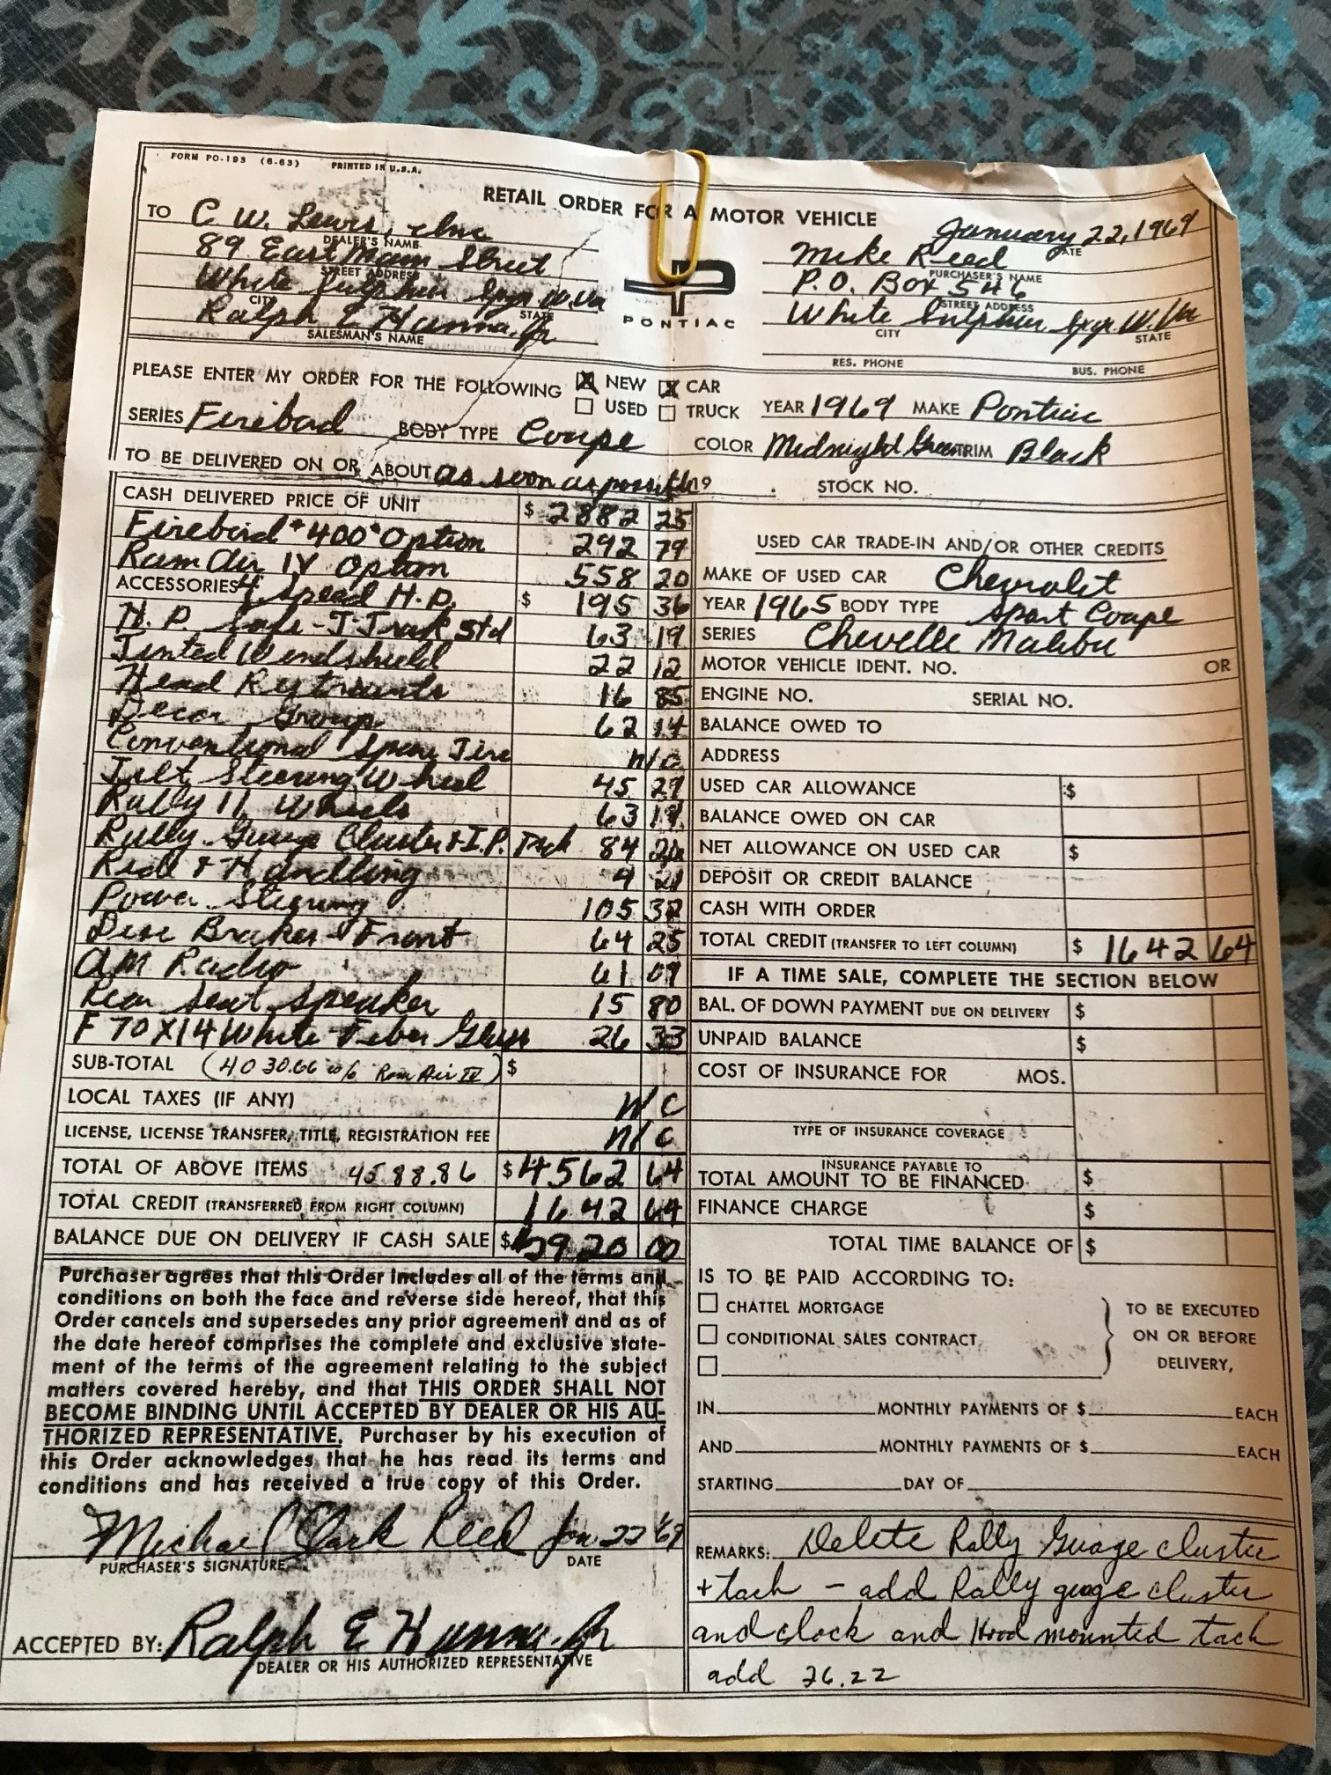 FORM PO-193 (6-63) PRINTED IN U.S.A.
RETAIL ORDER FOR A MOTOR VEHICLE
January 22, 1969
DATE
TO C W. Lewis, Inc
DEALER'S NAME
89 East Main Street
STREET ADDRESS
White Sulphur Spgs W. Va
CITY STATE
Ralph E Hanna, Jr
SALESMAN'S NAME
PONTIAC
Mike Reed
PURCHASER'S NAME
P.O. Box 546
STREET ADDRESS
White Sulphur Spgs W. Va
CITY STATE
RES. PHONE BUS. PHONE
PLEASE ENTER MY ORDER FOR THE FOLLOWING X NEW X CAR
USED TRUCK YEAR 1969 MAKE Pontiac
SERIES Firebird BODY TYPE Coupe COLOR Midnight Green TRIM Black
TO BE DELIVERED ON OR ABOUT as soon as possible 19 STOCK NO.
CASH DELIVERED PRICE OF UNIT $ 2882 25
Firebird "400" Option 292 79
Ram Air IV Option 558 20
ACCESSORIES 4 Spead H.D. $ 195 36
H. D. Safe-T-Track Std 63 19
Tinted Windshield 22 12
Head Restraints 16 85
Decor Group 62 14
Conventional Spare Tire n/c
Tilt Steering Wheel 45 29
Rally II Wheels 63 19
Rally Guage Cluster & I.P. Tach 84 26
Ride & Handling 4 21
Power Steering 105 32
Disc Brakes-Front 64 25
AM Radio 61 09
Rear Seat Speaker 15 80
F 70 X14 White Fiber Glass 26 33
SUB-TOTAL (4030.66 w/o Ram Air IV) $
LOCAL TAXES (IF ANY) N/C
LICENSE, LICENSE TRANSFER, TITLE, REGISTRATION FEE n/c
TOTAL OF ABOVE ITEMS 4588.86 $ 4562 64
TOTAL CREDIT (TRANSFERRED FROM RIGHT COLUMN) 1642 64
BALANCE DUE ON DELIVERY IF CASH SALE $ 2920 00
Purchaser agrees that this Order includes all of the terms and
conditions on both the face and reverse side hereof, that this
Order cancels and supersedes any prior agreement and as of
the date hereof comprises the complete and exclusive state-
ment of the terms of the agreement relating to the subject
matters covered hereby, and that THIS ORDER SHALL NOT
BECOME BINDING UNTIL ACCEPTED BY DEALER OR HIS AU-
THORIZED REPRESENTATIVE. Purchaser by his execution of
this Order acknowledges that he has read its terms and
conditions and has received a true copy of this Order.
Michael Clark Reed Jan. 22 '69
PURCHASER'S SIGNATURE DATE
ACCEPTED BY: Ralph E Hanna, Jr
DEALER OR HIS AUTHORIZED REPRESENTATIVE
USED CAR TRADE-IN AND/OR OTHER CREDITS
MAKE OF USED CAR Chevrolet
YEAR 1965 BODY TYPE Sport Coupe
SERIES Chevelle Malibu
MOTOR VEHICLE IDENT. NO. OR
ENGINE NO. SERIAL NO.
BALANCE OWED TO
ADDRESS
USED CAR ALLOWANCE $
BALANCE OWED ON CAR
NET ALLOWANCE ON USED CAR $
DEPOSIT OR CREDIT BALANCE
CASH WITH ORDER
TOTAL CREDIT (TRANSFER TO LEFT COLUMN) $ 1642 64
IF A TIME SALE, COMPLETE THE SECTION BELOW
BAL. OF DOWN PAYMENT DUE ON DELIVERY $
UNPAID BALANCE $
COST OF INSURANCE FOR MOS.
TYPE OF INSURANCE COVERAGE
INSURANCE PAYABLE TO
TOTAL AMOUNT TO BE FINANCED $
FINANCE CHARGE $
TOTAL TIME BALANCE OF $
IS TO BE PAID ACCORDING TO:
CHATTEL MORTGAGE TO BE EXECUTED
CONDITIONAL SALES CONTRACT ON OR BEFORE
DELIVERY,
IN MONTHLY PAYMENTS OF $ EACH
AND MONTHLY PAYMENTS OF $ EACH
STARTING DAY OF
REMARKS: Delete Rally Guage cluster
+ tach - add Rally guage cluster
and clock and Hood mounted tach
add 26.22